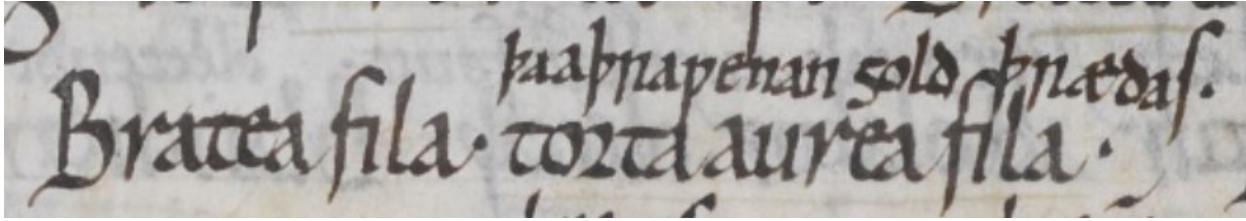 þa aþraƿenan gold þrædas.
Brattea fila· torta aurea fila·